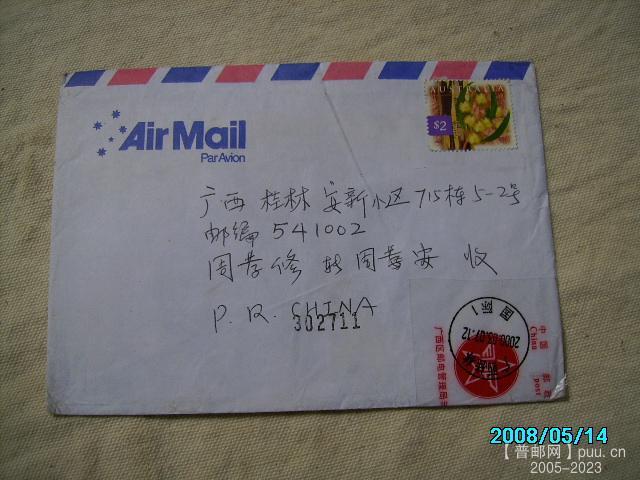 AUSTRALIA
$2
Air Mail
Par Avion
广西 桂林 安新小区 715栋 5-2号
邮编 541002
周孝修 转 周善安 收
P. R. CHINA
302711
国际1
2000.03.07.12
中国
China
邮政
post
广西区邮电管理局
2008/05/14
【普邮网】puu.cn
2005-2023